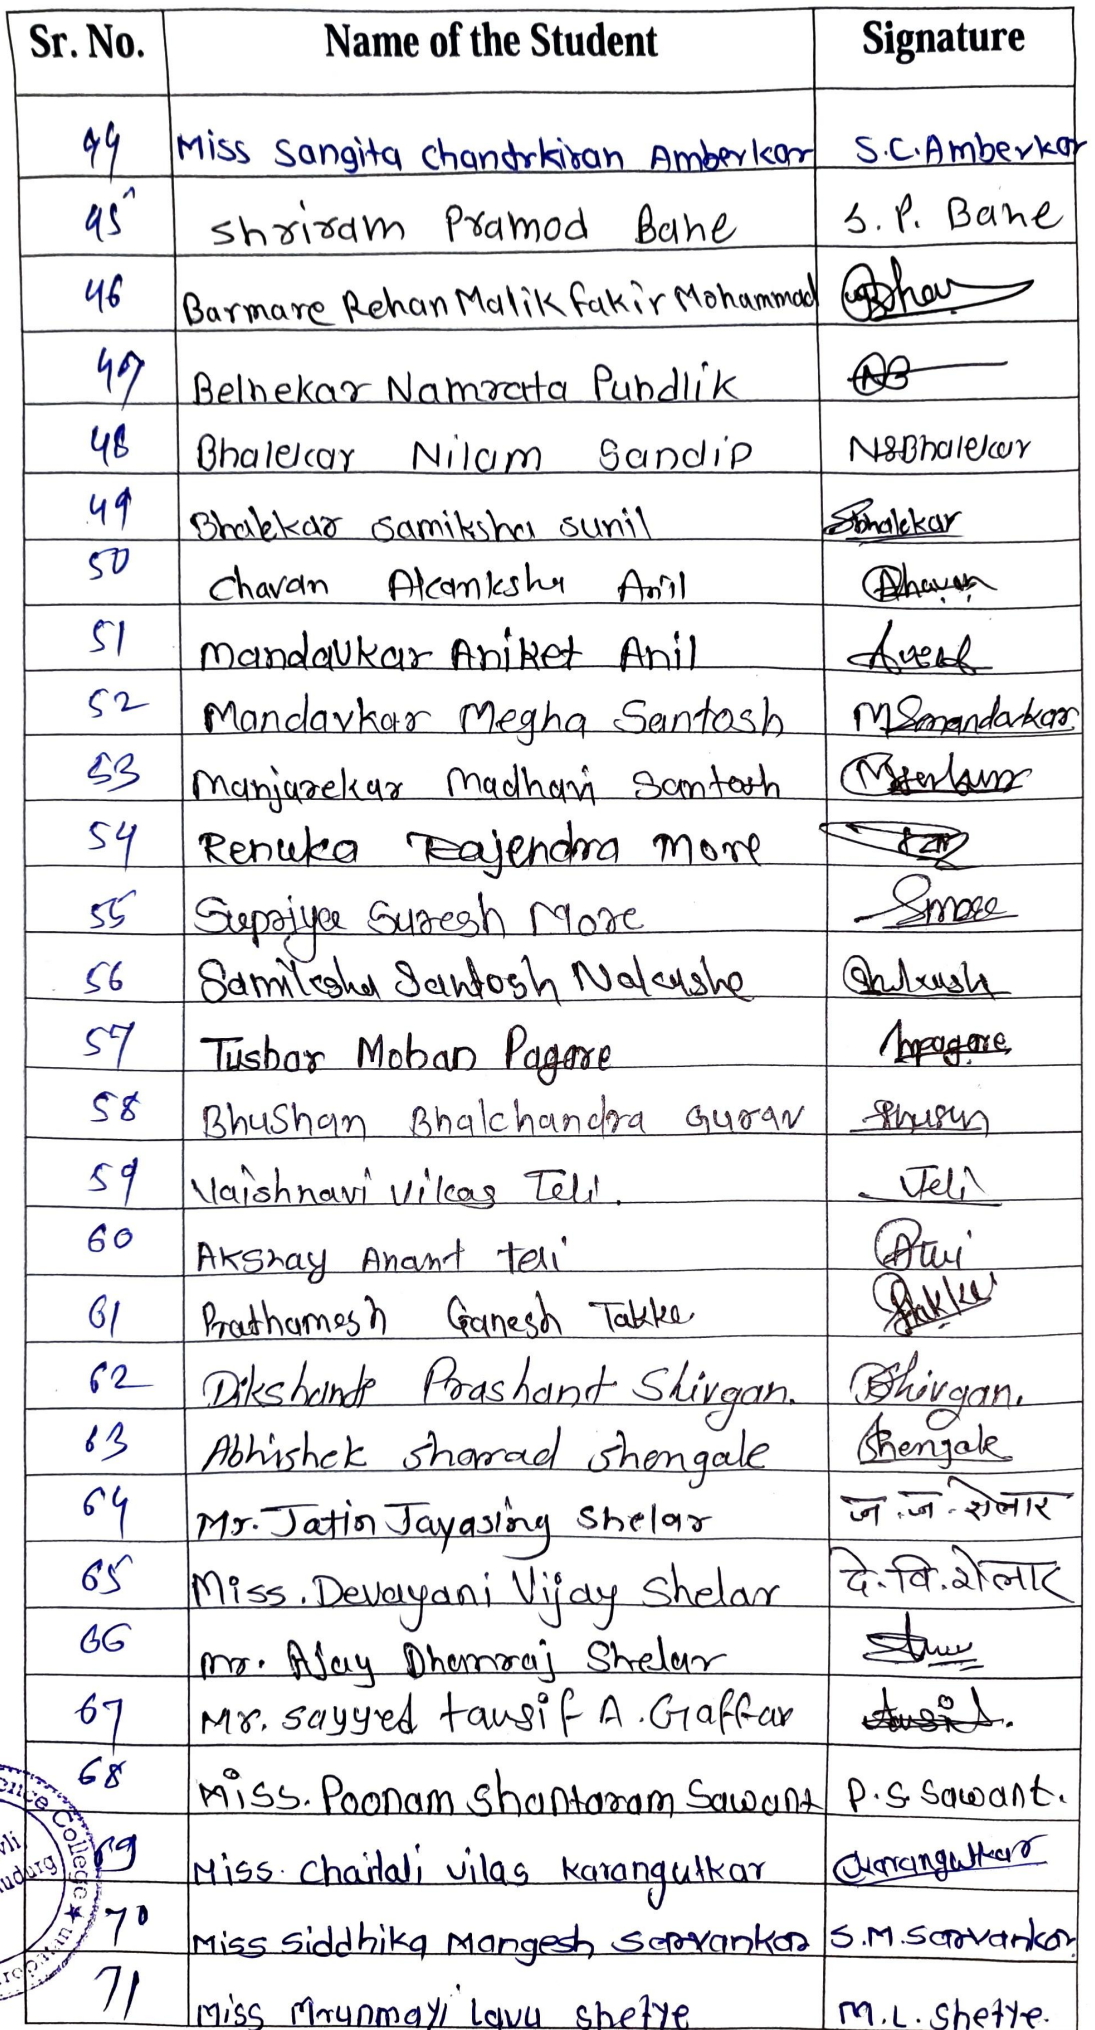 Sr. No. Name of the Student Signature
44 Miss Sangita Chandrkiran Amberkar S.C.Amberkar
45 Shriram Pramod Bane S. P. Bane
46 Barmare Rehan Malik Fakir Mohammad
47 Belnekar Namrata Pundlik
48 Bhalekar Nilam Sandip NSBhalekar
49 Bhalekar Samiksha Sunil Sbhalekar
50 Chavan Akanksha Anil
51 Mandavkar Aniket Anil
52 Mandavkar Megha Santosh MSmandavkar
53 Manjarekar Madhavi Santosh
54 Renuka Rajendra More
55 Suresh More Smore
56 Samiksha Santosh Nakashe
57 Tushar Mohan Pagare
58 Bhushan Bhalchandra Gurav
59 Vaishnavi Vikas Teli. Teli
60 Akshay Anant Teli
61 Prathamesh Ganesh Takke
62 Prashant Shivgan. Shivgan.
63 Abhishek Sharad Shengale Shengale
64 Mr. Jatin Jayasing Shelar ज.ज.शेलार
65 Miss. Devayani Vijay Shelar दे.वि.शेलार
66 Mr. Ajay Dhanraj Shelar
67 Mr. Sayyed tausif A. Gaffar
68 Miss. Poonam Shantaram Sawant P.S. Sawant.
69 Miss. Chaitali Vilas Karangutkar CKarangutkar
70 Miss Siddhika Mangesh Sarvankar S.M.Sarvankar
71 Miss Mrunmayi Lavu Shetye M.L. Shetye.
College